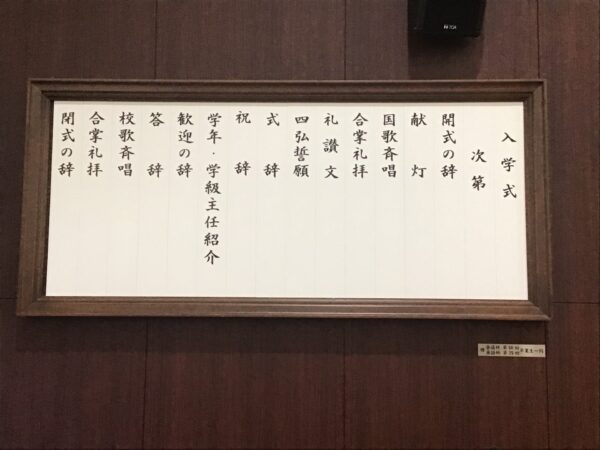 入学式
次第
開式の辞
献灯
国歌斉唱
合掌礼拝
礼讃文
四弘誓願
式辞
祝辞
学年・学級主任紹介
歓迎の辞
答辞
校歌斉唱
合掌礼拝
閉式の辞
TOA